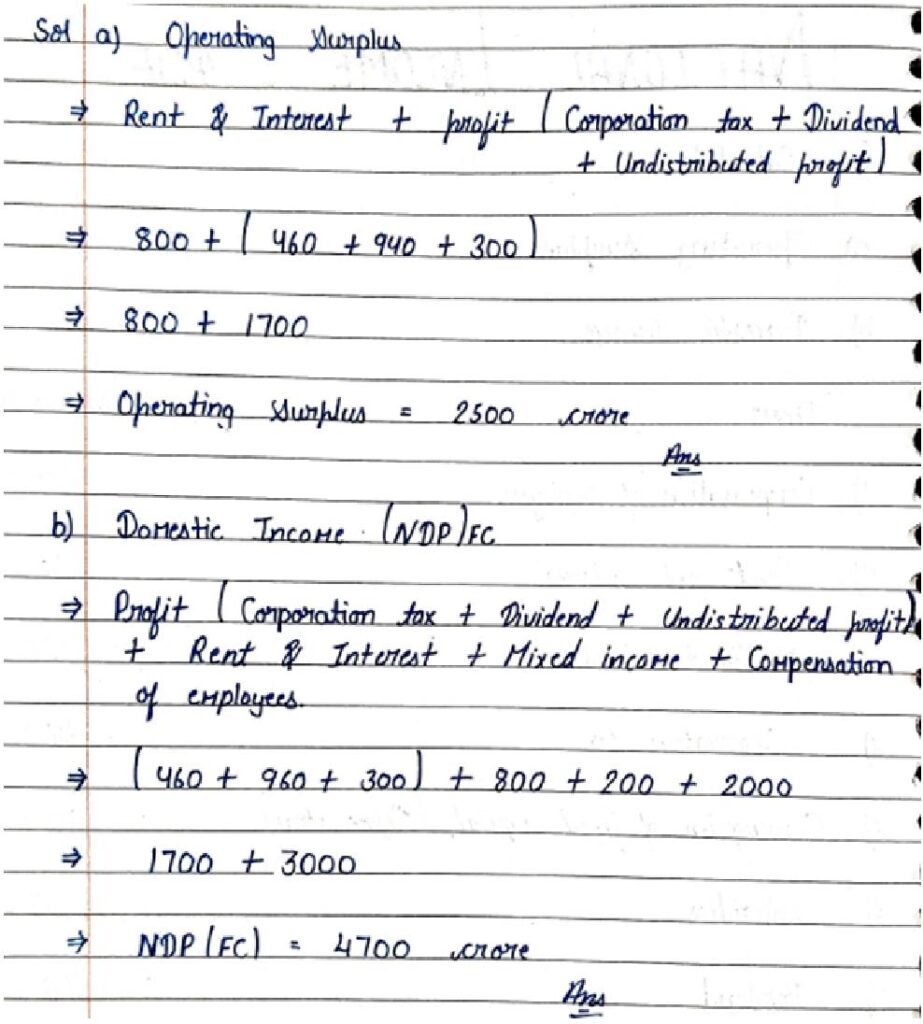 Sol a) Operating Surplus
⇒ Rent & Interest + profit (Corporation tax + Dividend
+ Undistributed profit)
⇒ 800 + (460 + 940 + 300)
⇒ 800 + 1700
⇒ Operating Surplus = 2500 crore
Ans
b) Domestic Income (NDP)FC
⇒ Profit (Corporation tax + Dividend + Undistributed profit)
+ Rent & Interest + Mixed income + Compensation
of employees.
⇒ (460 + 960 + 300) + 800 + 200 + 2000
⇒ 1700 + 3000
⇒ NDP(FC) = 4700 crore
Ans